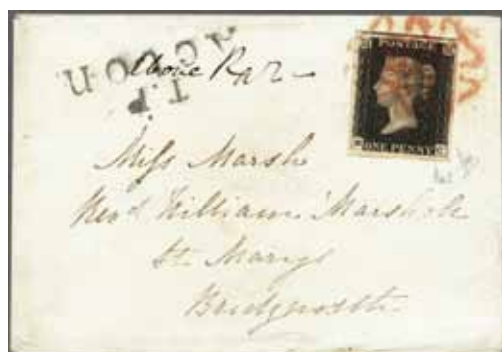 T.P
Acton
Above
POSTAGE
ONE PENNY
Miss Marsh
Revd William Marsh
St Marys
Bridgnorth